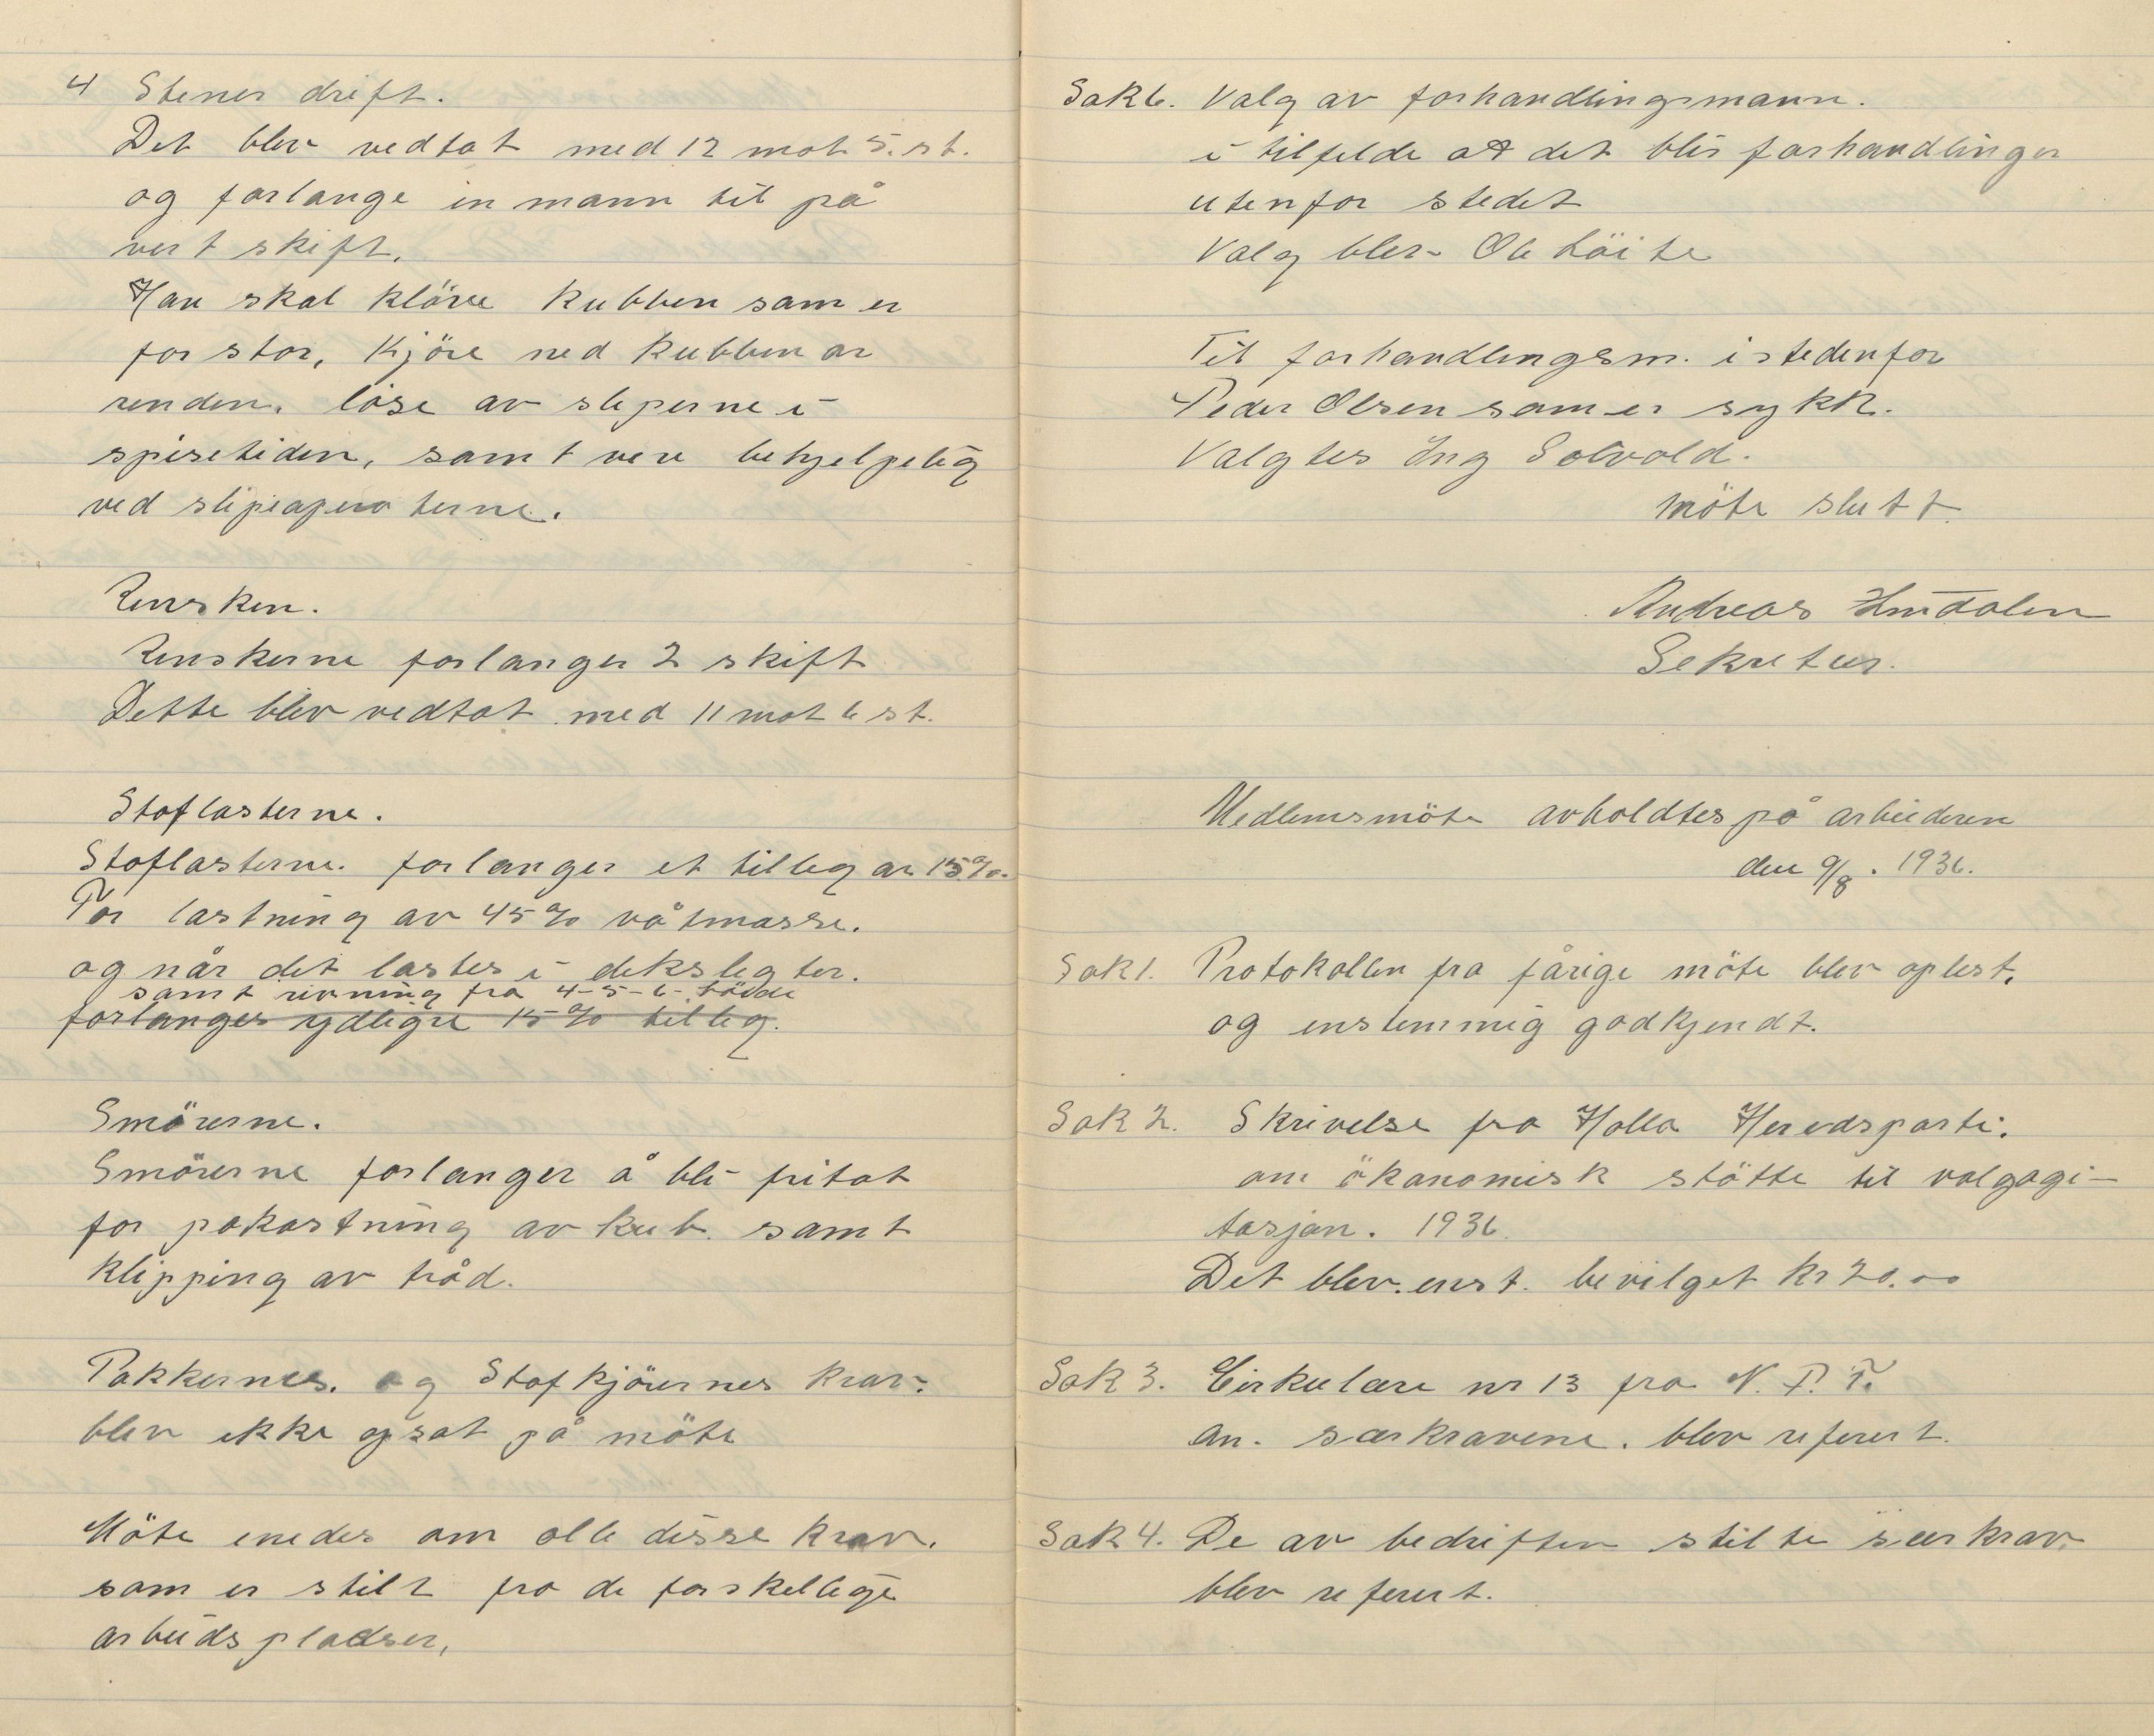 4 Stener drift.
Det blev vedtat med 12 mot 5. st.
og forlange in mann til på
vert skift.
Han skal klöve kubben som er
for stor, Kjöre ned kubben av
renden. löse av sliperne i
spisetiden, samt vere behjelpelig
ved slipeaperaterne.
Rensken.
Renskerne forlanger 2 skift
Dette blev vedtat med 11 mot 6 st.
Stoflasterne.
Stoflasterne. forlanger et tilleg av 15%.
For lastning av 45% våtmasse.
og når det lastes i dekslegter.
samt rivning fra 4-5-6- höide
forlanges ydligre 15% tilleg.
Smörerne.
Smörerne forlanger å bli fritat
for pakastning av kub. samt
Klipping av tråd.
Pakkernes. og Stofkjörernes krav.
blev ikke opsat på möte
Möte enedes om alle disse krav.
som er stilt fra de forskellige
arbeidspladser,
Sak 6. Valg av forhandlingsmann.
i tilfelde at det blir forhandlinger
utenfor stedet
Valg blev Ole Höite
Til forhandlingsm. istedenfor
Peder Olsen som er sykk.
Valgtes Ing Solvold.
möte slutt.
Andreas
Sekretær.
Medlemsmöte avholdtes på arbeideren
den 9/8. 1936.
Sak 1. Protokollen fra fårige möte blev oplest.
og enstemmig godkjendt.
Sak 2. Skrivelse fra Holla Heredsparti.
om ökonomisk stötte til valgagi-
tasjon. 1936.
Det blev. enst. bevilget kr 20.00
Sak 3. Cirkulære nr 13 fra N. P. F.
an. særkravene. blev referert.
Sak 4. De av bedriften stilte særkrav
blev referert.